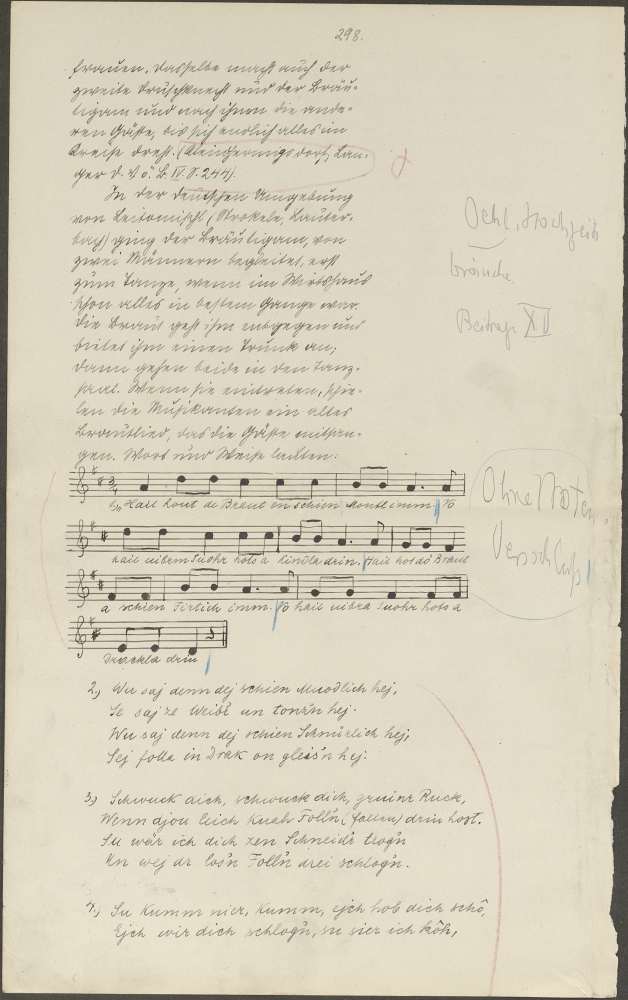 298.
frauen. Dasselbe macht auch der
zweite Druschknecht und der Bräu-
tigam und nach ihnen die ande-
ren Gäste, bis sich endlich alles im
Kreise dreht. (Kleinhermigsdorf, Lan-
ger D. V. ö. B. IV. S. 244).
In der deutschen Umgebung
von Leitomischl (Strokele, Lauter-
bach) ging der Bräutigam, von
zwei Männern begleitet, erst
zum Tanze, wenn im Wirtshaus
schon alles in bestem Gange war.
Die Braut geht ihm entgegen und
bietet ihm einen Trunk an;
dann gehen beide in den Tanz-
saal. Wenn sie eintreten, spie-
len die Musikanten ein altes
Brautlied, das die Gäste mitsin-
gen. Wort und Weise lauten:
Oehl, Hochzeits
bräuche.
Beitrage XV
Ohne Noten
Versschluß
1, Hait hout de Braut en schien Montl imm. Vo
hait ivibrm Suohr hots a Kindla drin. Hait hot dö Braut
a schien Tirlich imm. Vo hait ivibra Suohr hots a
Drackla drin
2, Wu saj denn dej schien Muodlich hej,
Se saj ze Weibl un tonz'n hej.
Wu saj denn dej schien Schnürlich hej,
Sej folla in Drak on gleis'n hej.
3, Schmuck dich, schmuck dich, grüinr Ruck,
Wenn djou leich Knah Foll'n (fallen) drin host.
Su wär ich dich zen Schneidr trog'n
En wej dr los'n Foll'n drei schlog'n.
4, Su kumm nier, kumm, ejch hob dich schö,
Ejch wir dich schlog'n, su sier ich köh,